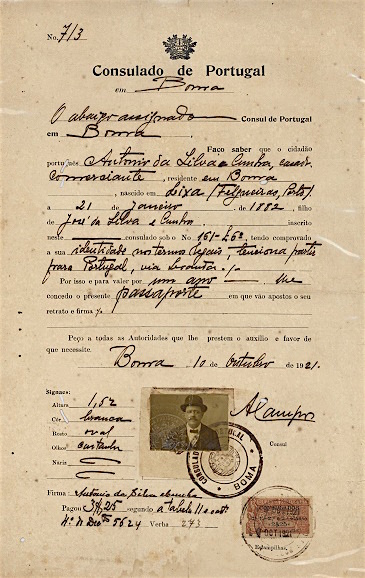 No. 713
Consulado de Portugal
em Boma
O abaixo assignado Consul de Portugal
em Boma
Faço saber que o cidadão
português Antonio da Silva e Cunha, casado
comerciante, residente em Boma
, nascido em Lixa (Felgueiras, Porto)
a 21 de Janeiro de 1882, filho
de José da Silva e Cunha inscrito
neste consulado sob o No. 151-26ª, tendo comprovado
a sua identidade nos termos legais, tenciona partir
para Portugal, via
Por isso e para valer por um ano lhe
concedo o presente passaporte em que vão apostos o seu
retrato e firma
Peço a todas as Autoridades que lhe prestem o auxilio e favor de
que necessite.
Boma 10 Outubro de 1921.
Signaes:
Altura 1,52
Côr branca
Rosto oval
Olhos castanhos
Nariz
ACampos
Consul
CONSULADO
BOMA
Firma: Antonio da Silva e Cunha
Pagou segundo a tabela 11 e
Nº Decto 5624 Verba 243
OUT 1921
Estampilhas,